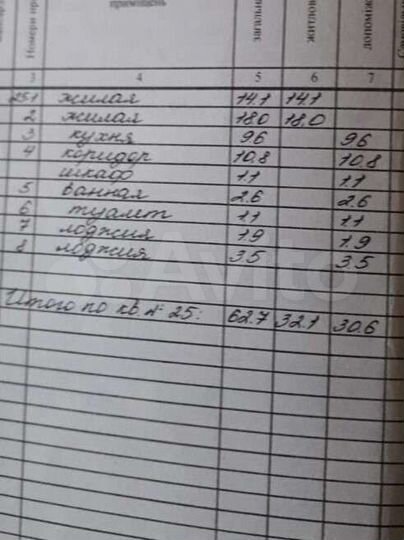 Номери
приміщень
загаль
житлов
допоміж
3 4 5 6 7
251 жилая 14.1 14.1
2 жилая 18.0 18.0
3 кухня 9.6 9.6
4 коридор 10.8 10.8
шкаф 1.1 1.1
5 ванная 2.6 2.6
6 туалет 1.1 1.1
7 лоджия 1.9 1.9
8 лоджия 3.5 3.5
Итого по кв № 25: 62.7 32.1 30.6
Avito